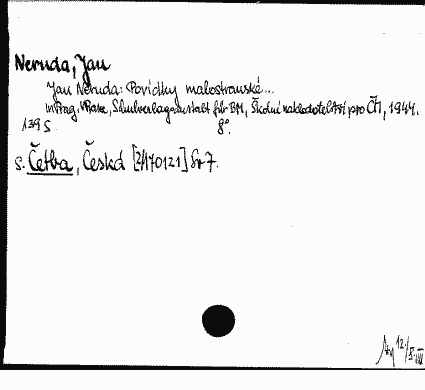 Neruda, Jan
Jan Neruda: Povídky malostranské...
in Prag, v Praze, Schulverlagsanstalt für BM, Školní nakladatelství pro ČM, 1944.
139 S. 8°.
s. Četba, Česká [2/170121] Sv 7.